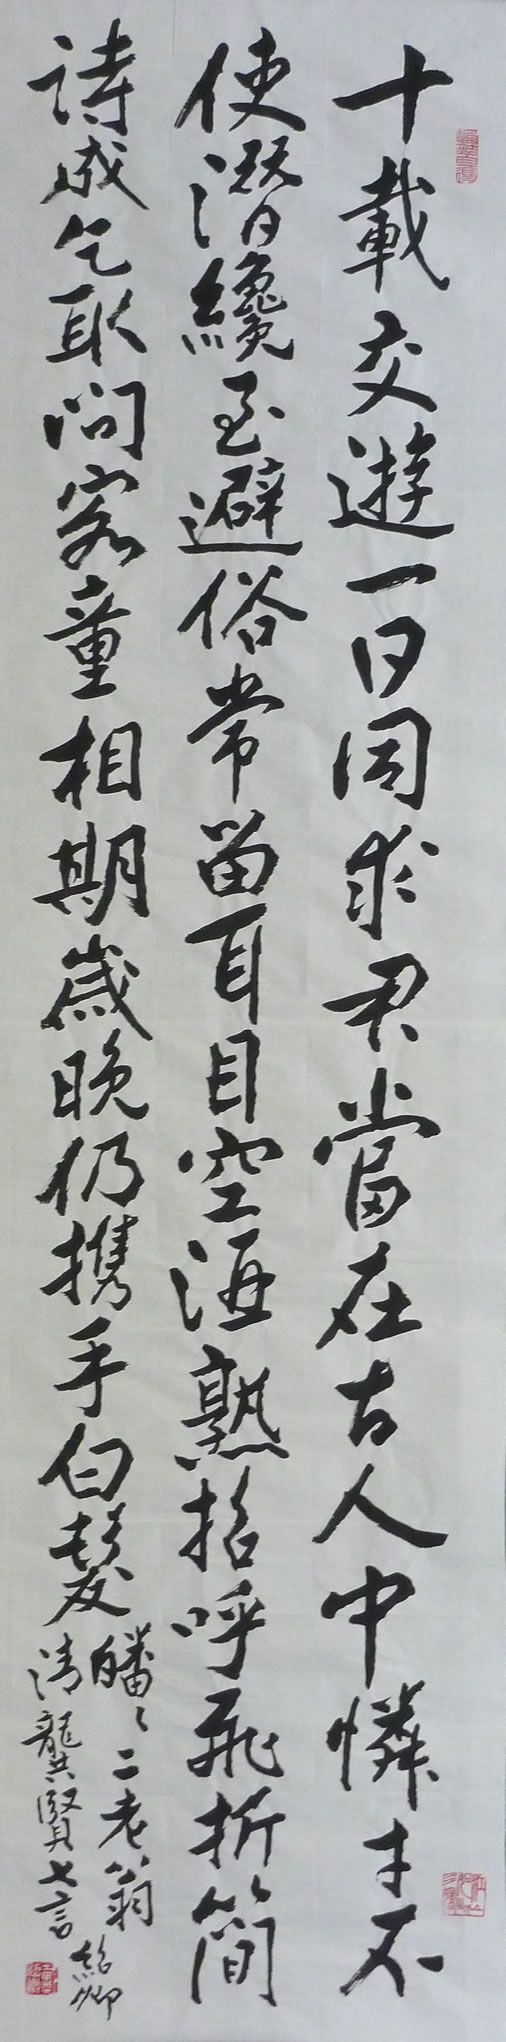 十載交遊一日同求君當在古人中憐才不
使潛纔至避俗常留耳目空酒熟招呼飛折簡
詩成乞取問家童相期歲晚仍携手白髮
皤々二老翁
清龔賢七言